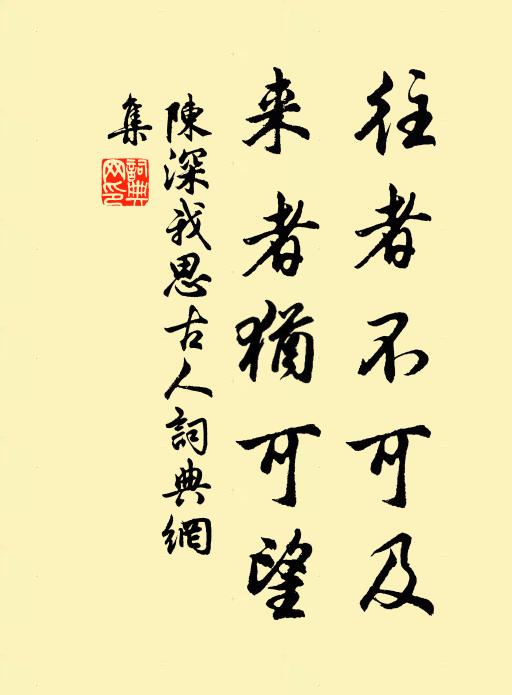 往者不可及
来者猶可望
陳深我思古人詞典網
集
詞典
网印